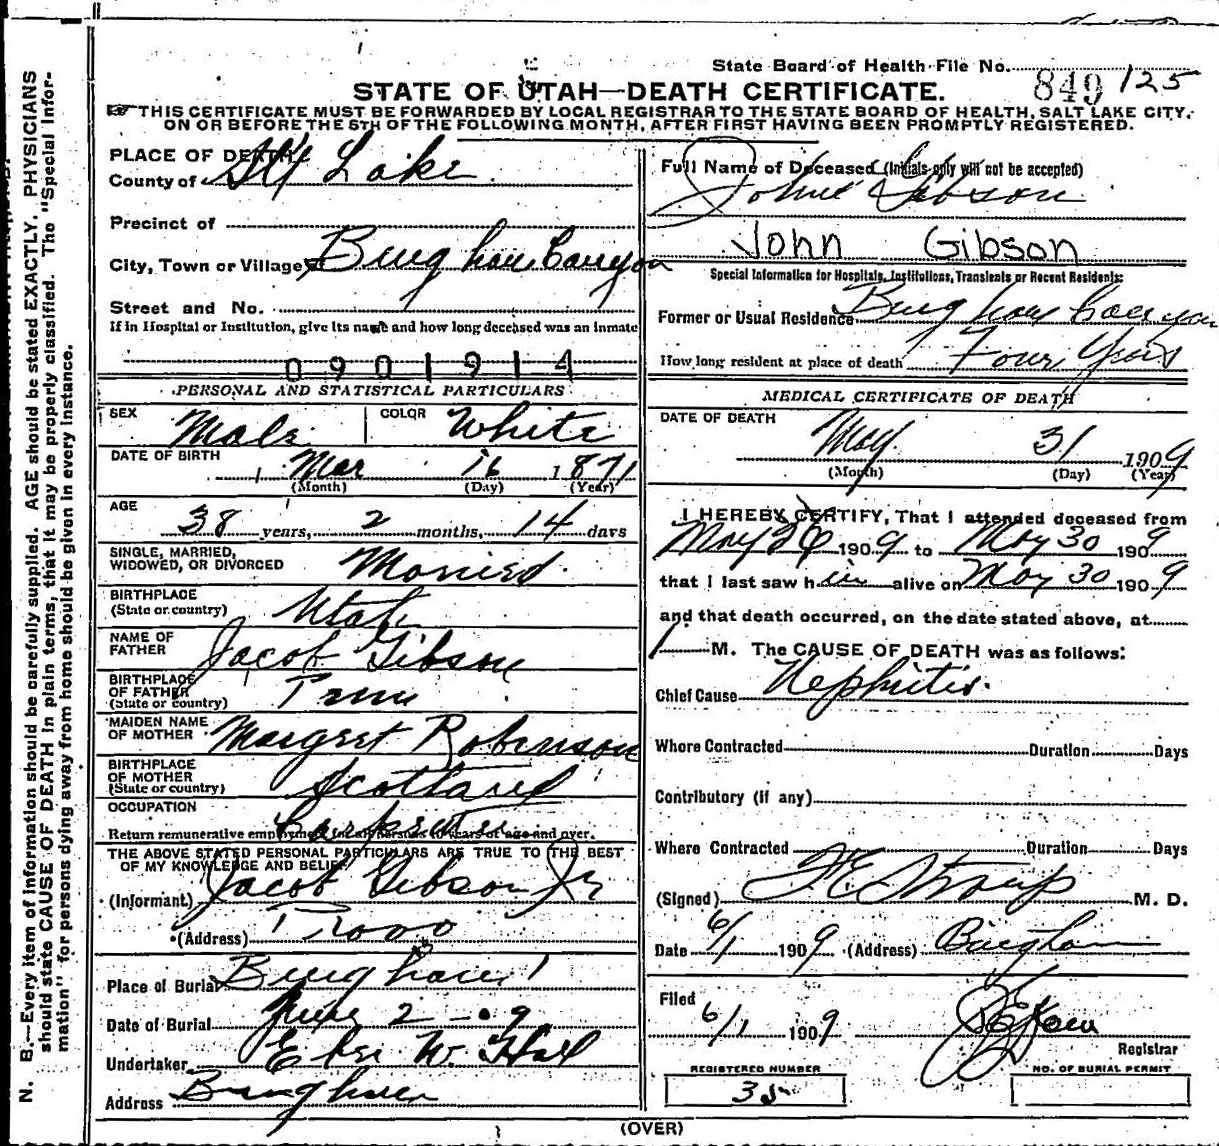 State Board of Health File No. 849 125
STATE OF UTAH—DEATH CERTIFICATE.
THIS CERTIFICATE MUST BE FORWARDED BY LOCAL REGISTRAR TO THE STATE BOARD OF HEALTH, SALT LAKE CITY.
ON OR BEFORE THE 5TH OF THE FOLLOWING MONTH, AFTER FIRST HAVING BEEN PROMPTLY REGISTERED.
PLACE OF DEATH
County of Slt Lake
Precinct of
City, Town or Village Bingham Canyon
Street and No.
If in Hospital or Institution, give its name and how long deceased was an inmate
0901914
PERSONAL AND STATISTICAL PARTICULARS
SEX Male COLOR White
DATE OF BIRTH Mar 16 1871
(Month) (Day) (Year)
AGE 38 years, 2 months, 14 days
SINGLE, MARRIED,
WIDOWED, OR DIVORCED Married.
BIRTHPLACE
(State or country) Utah
NAME OF
FATHER Jacob Gibson
BIRTHPLACE
OF FATHER
(State or country) Penn
MAIDEN NAME
OF MOTHER Margret Robinson
BIRTHPLACE
OF MOTHER
(State or country) Scotland
OCCUPATION Carpenter
Return remunerative employment for all persons 10 years of age and over.
THE ABOVE STATED PERSONAL PARTICULARS ARE TRUE TO THE BEST
OF MY KNOWLEDGE AND BELIEF
(Informant) Jacob Gibson Jr
(Address) Provo
Place of Burial Bingham
Date of Burial June 2 - 09
Undertaker W. Hall
Address Bingham
Full Name of Deceased (Initials only will not be accepted)
John Gibson
John Gibson
Special Information for Hospitals, Institutions, Transients or Recent Residents:
Former or Usual Residence Bingham Canyon
How long resident at place of death Four Years
MEDICAL CERTIFICATE OF DEATH
DATE OF DEATH
May 31 1909
(Month) (Day) (Year)
I HEREBY CERTIFY, That I attended deceased from
May 26 1909 to May 30 1909
that I last saw him alive on May 30 1909
and that death occurred, on the date stated above, at
M. The CAUSE OF DEATH was as follows:
Chief Cause Nephritis.
Where Contracted Duration Days
Contributory (if any)
Where Contracted Duration Days
(Signed) F E Straup M. D.
Date 6/1 1909 (Address) Bingham
Filed
6/1 1909
Registrar
REGISTERED NUMBER
35
NO. OF BURIAL PERMIT
(OVER)
N. B.—Every item of information should be carefully supplied. AGE should be stated EXACTLY. PHYSICIANS
should state CAUSE OF DEATH in plain terms, that it may be properly classified. The "Special Infor-
mation" for persons dying away from home should be given in every instance.